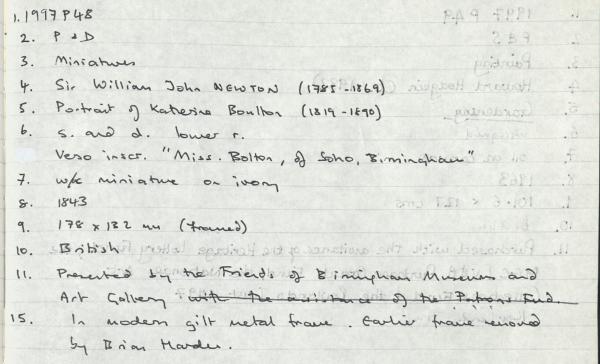 1. 1997 P 48
2. P & D
3. Miniatures
4. Sir William John NEWTON (1785-1869)
5. Portrait of Katherine Boulton (1819-1890)
6. s. and d. lower r.
Verso inscr. "Miss. Bolton, of Soho, Birmingham"
7. w/c miniature on ivory
8. 1843
9. 178 x 132 mm (framed)
10. British
11. Presented by the Friends of Birmingham Museum and
Art Gallery with the assistance of the Patrons Fund.
15. In modern gilt metal frame. Earlier frame removed
by Brian